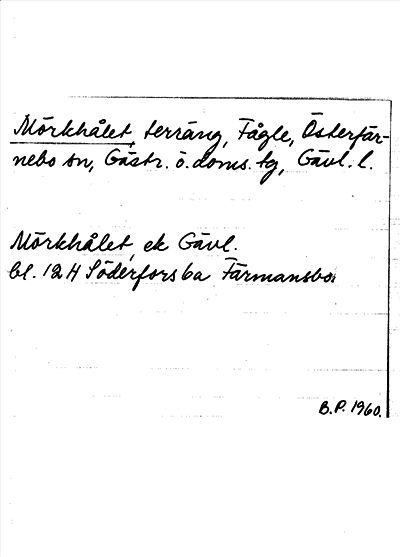 Mörkhålet, terräng, Fågle, Österfär-
nebo sn, Gästr. ö. doms. tg, Gävl. l.
Mörkhålet, ek Gävl.
bl. 12 H Söderfors 6a Färmansbo
B.P. 1960.